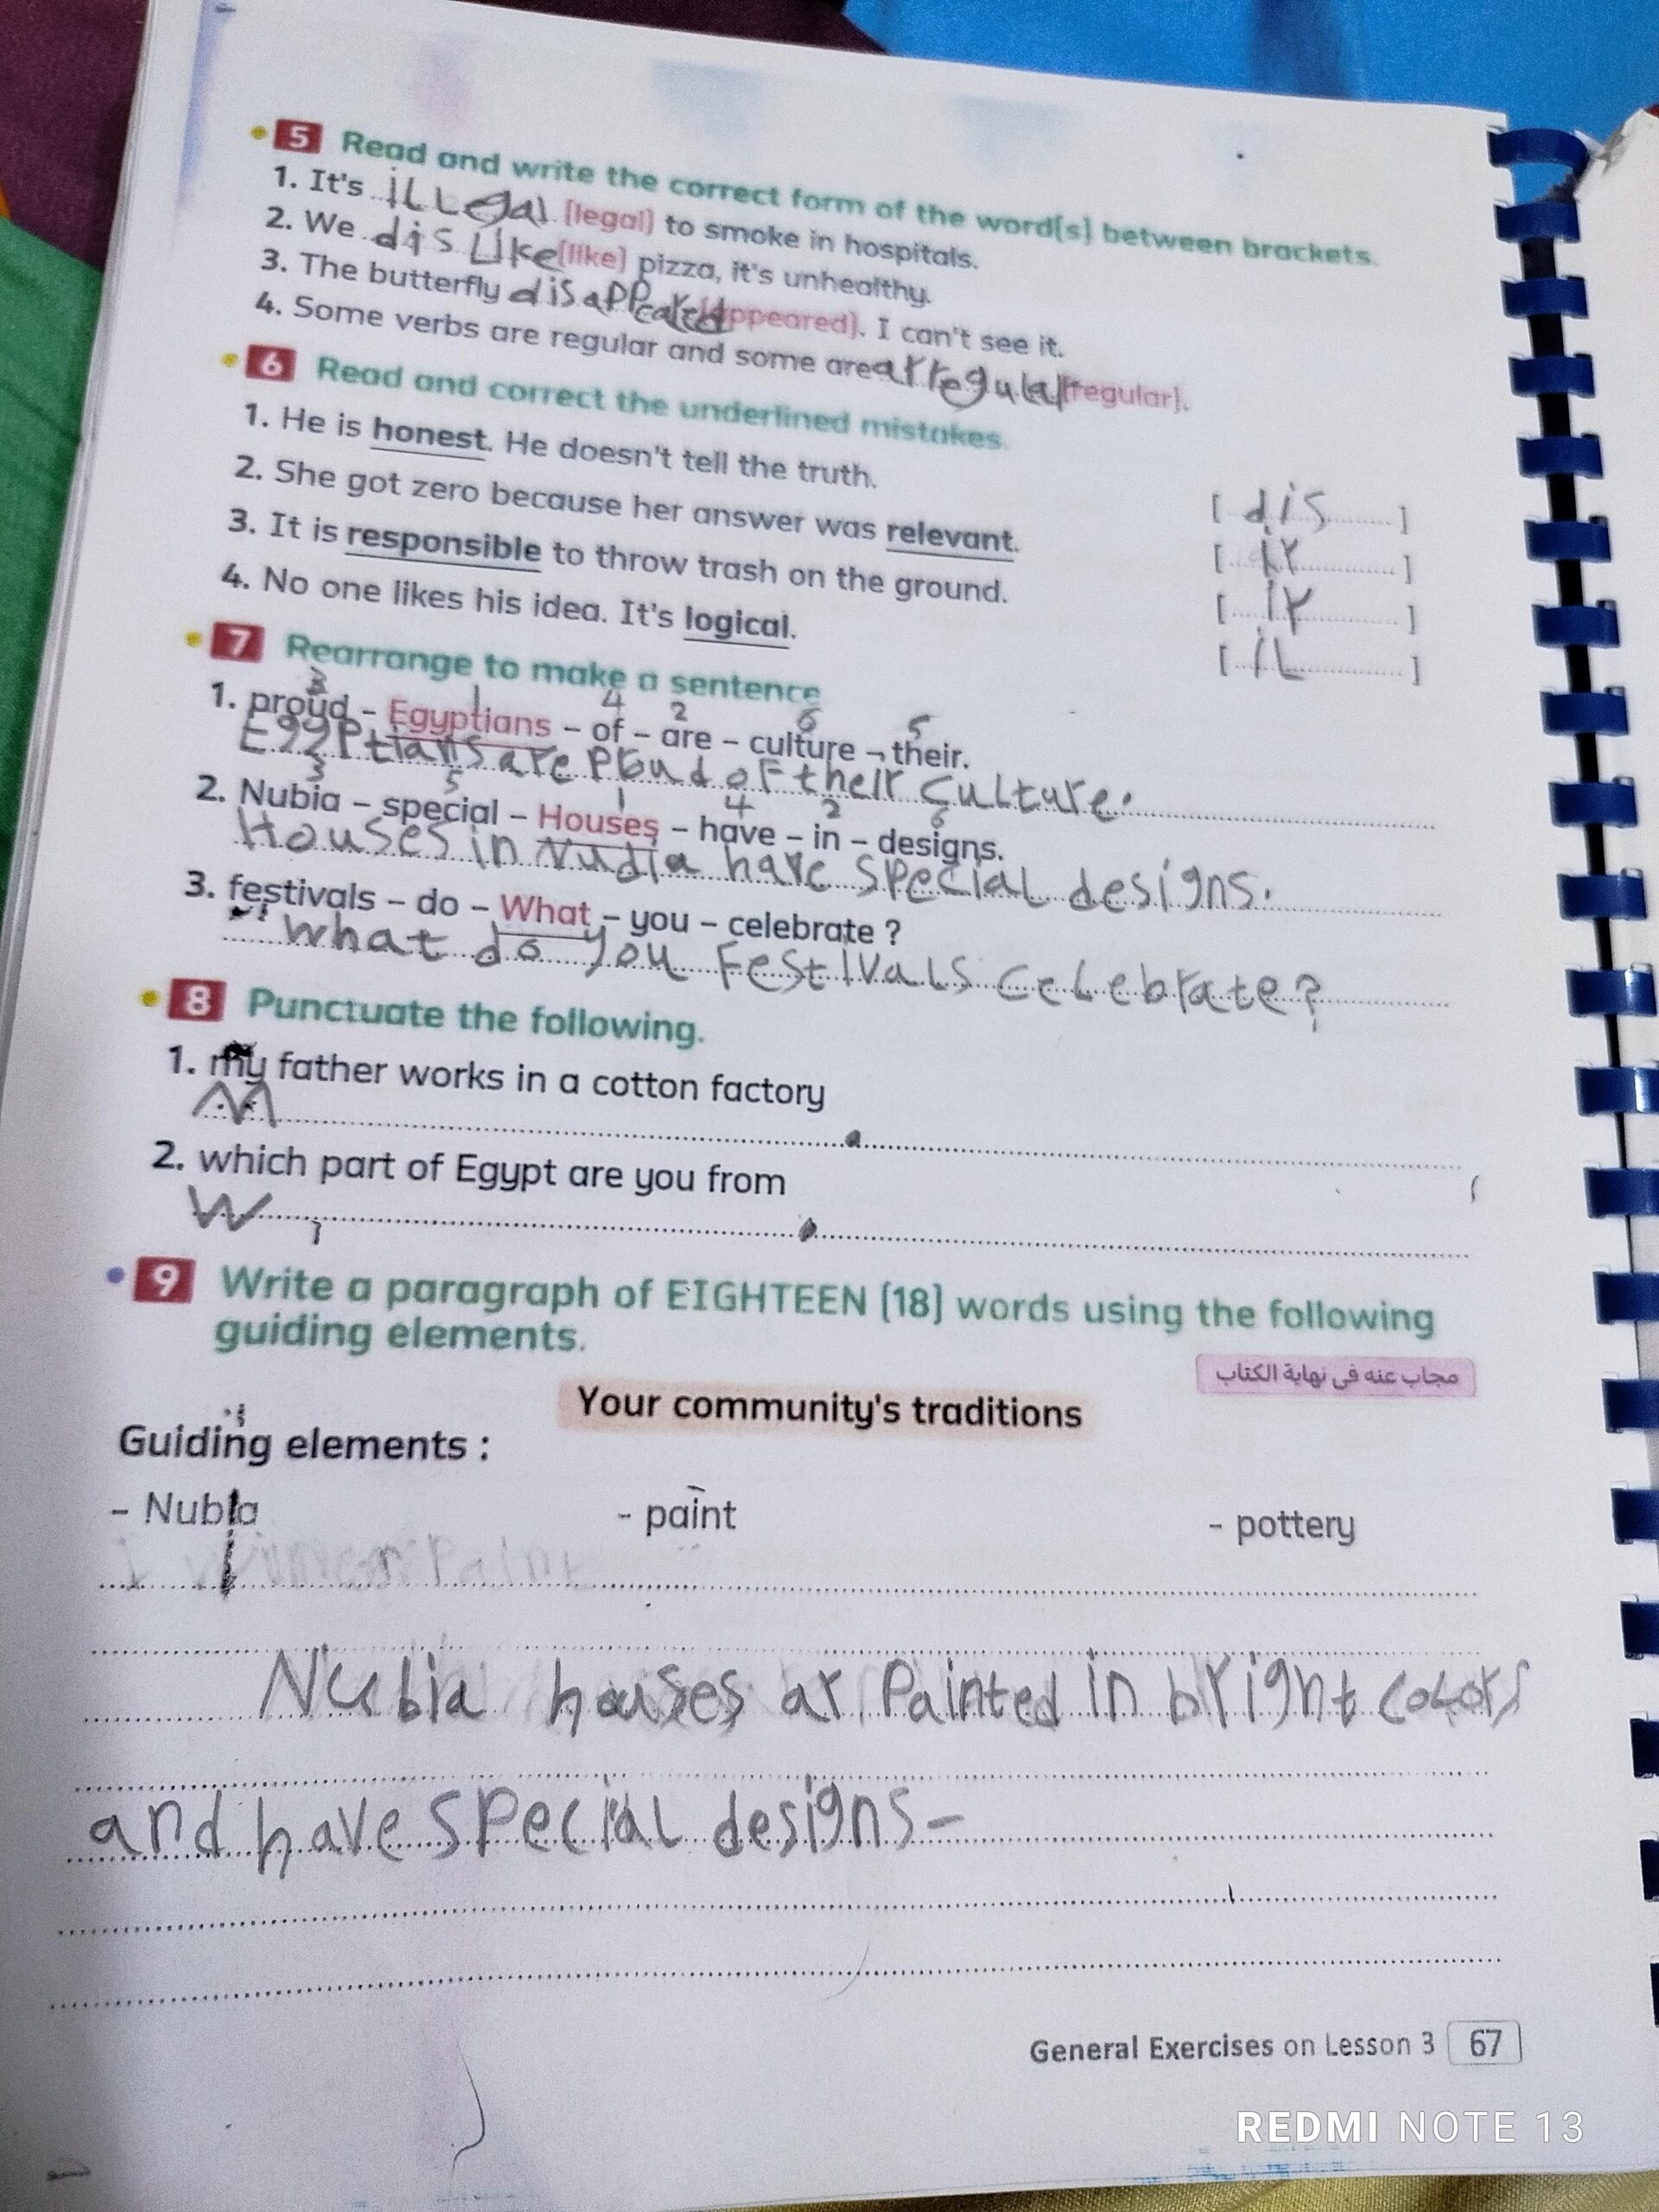 5 Read and write the correct form of the word(s) between brackets.
1. It's illegal (legal) to smoke in hospitals.
2. We dislike (like) pizza, it's unhealthy.
3. The butterfly disappeared (appeared). I can't see it.
4. Some verbs are regular and some are arregular (regular).
6 Read and correct the underlined mistakes.
1. He is honest. He doesn't tell the truth. [ dis ]
2. She got zero because her answer was relevant. [ ir ]
3. It is responsible to throw trash on the ground. [ ir ]
4. No one likes his idea. It's logical. [ iL ]
7 Rearrange to make a sentence
3 1 4 2 6 5
1. proud – Egyptians – of – are – culture – their.
Egyptians are proud of their culture.
3 5 1 4 2 6
2. Nubia – special – Houses – have – in – designs.
Houses in Nudia have special designs.
3. festivals – do – What – you – celebrate ?
What do you Festivals celebrate?
8 Punctuate the following.
1. my father works in a cotton factory
M .
2. which part of Egypt are you from
W .
9 Write a paragraph of EIGHTEEN (18) words using the following
guiding elements.
مجاب عنه فى نهاية الكتاب
Your community's traditions
Guiding elements :
- Nubia - paint - pottery
Nubia houses ar Painted in bright colors
and have special designs-
General Exercises on Lesson 3 67
REDMI NOTE 13